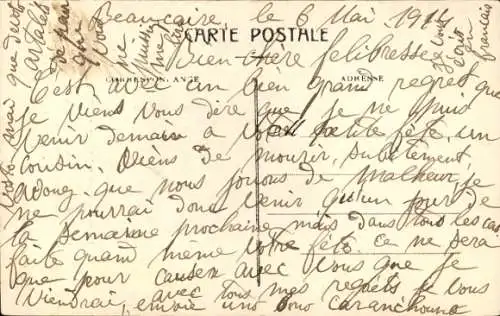 Beaucaire le 6 Mai 1914
CARTE POSTALE
CORRESPONDANCE
ADRESSE
Bien chère félibresse
C'est avec un bien grand regret que
je viens vous dire que je ne puis
venir demain à votre petite fête, un
cousin, viens de mourir, subitement,
avouez que nous jouons de malheur, je
ne pourrai donc venir qu'un jour de
la semaine prochaine, mais dans tous les cas
faite quand même votre fête. Ce ne sera
que pour causer avec vous que je
viendrai, avec tous mes regrets je vous
envoie uno bono
que
vous
ne
je vous
en
français